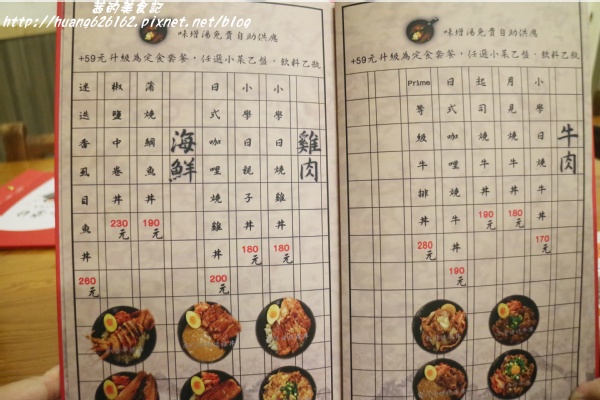 的美食記
http://huang626162.pixnet.net/blog
味增湯免費自助供應
+59元升級為定食套餐，任選小菜乙盤，飲料乙瓶
牛肉
小學日燒牛丼 170元
月見燒牛丼 180元
起司燒牛丼 190元
日式咖哩燒牛丼 190元
Prime等級牛排丼 280元
味增湯免費自助供應
+59元升級為定食套餐，任選小菜乙盤，飲料乙瓶
雞肉
小學日燒雞丼 180元
小學日親子丼 180元
日式咖哩雞丼 200元
海鮮
蒲燒鯛魚丼 190元
椒鹽中卷丼 230元
迷迭香虱目魚丼 260元